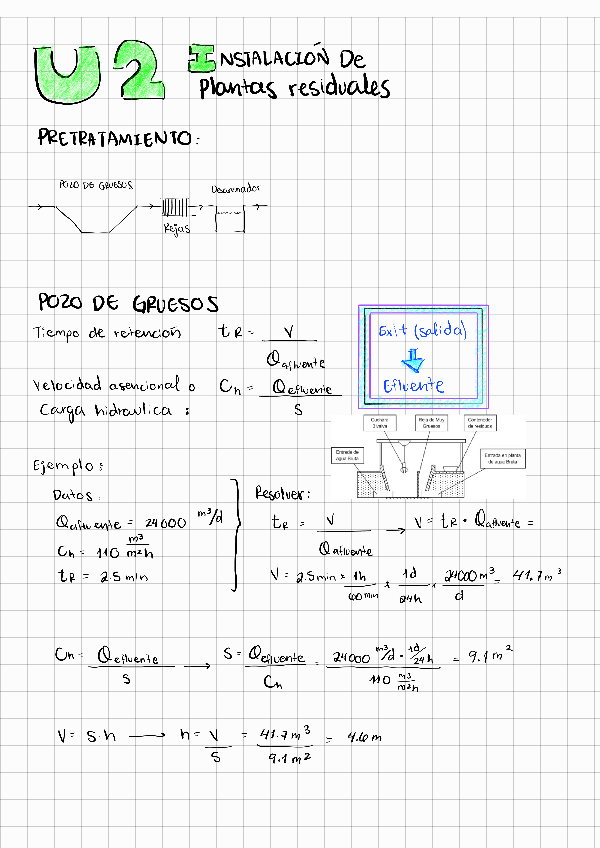 U2 INSTALACIÓN De
plantas residuales
PRETRATAMIENTO:
POZO DE GRUESOS
Desarenador
Rejas
POZO DE GRUESOS
Tiempo de retención tR = V / Qafluente
Velocidad asencional o Ch = Qefluente / S
Carga hidraulica :
Exit (salida)
Efluente
Cuchara Bivalva
Reja de Muy Gruesos
Contenedor de residuos
Entrada de Agua Bruta
Entrada en planta de agua Bruta
Ejemplo:
Datos:
Qafluente = 24000 m³/d
Ch = 110 m³/m²h
tR = 2.5 min
Resolver:
tR = V / Qafluente → V = tR · Qafluente =
V = 2.5min × 1h/60min × 1d/24h × 24000m³/d = 41.7m³
Ch = Qefluente / S → S = Qefluente / Ch = 24000 m³/d · 1d/24h / 110 m³/m²h = 9.1 m²
V = S·h → h = V/S = 41.7m³ / 9.1m² = 4.6m